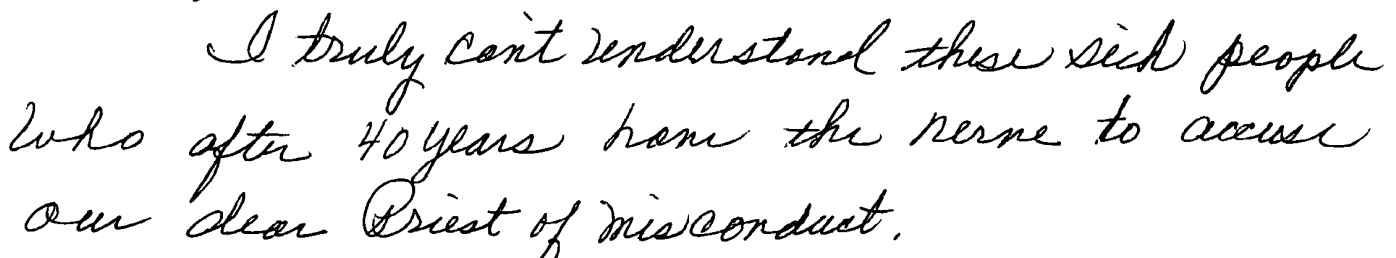 I truly can't understand these sick people
who after 40 years have the nerve to accuse
our dear Priest of misconduct.